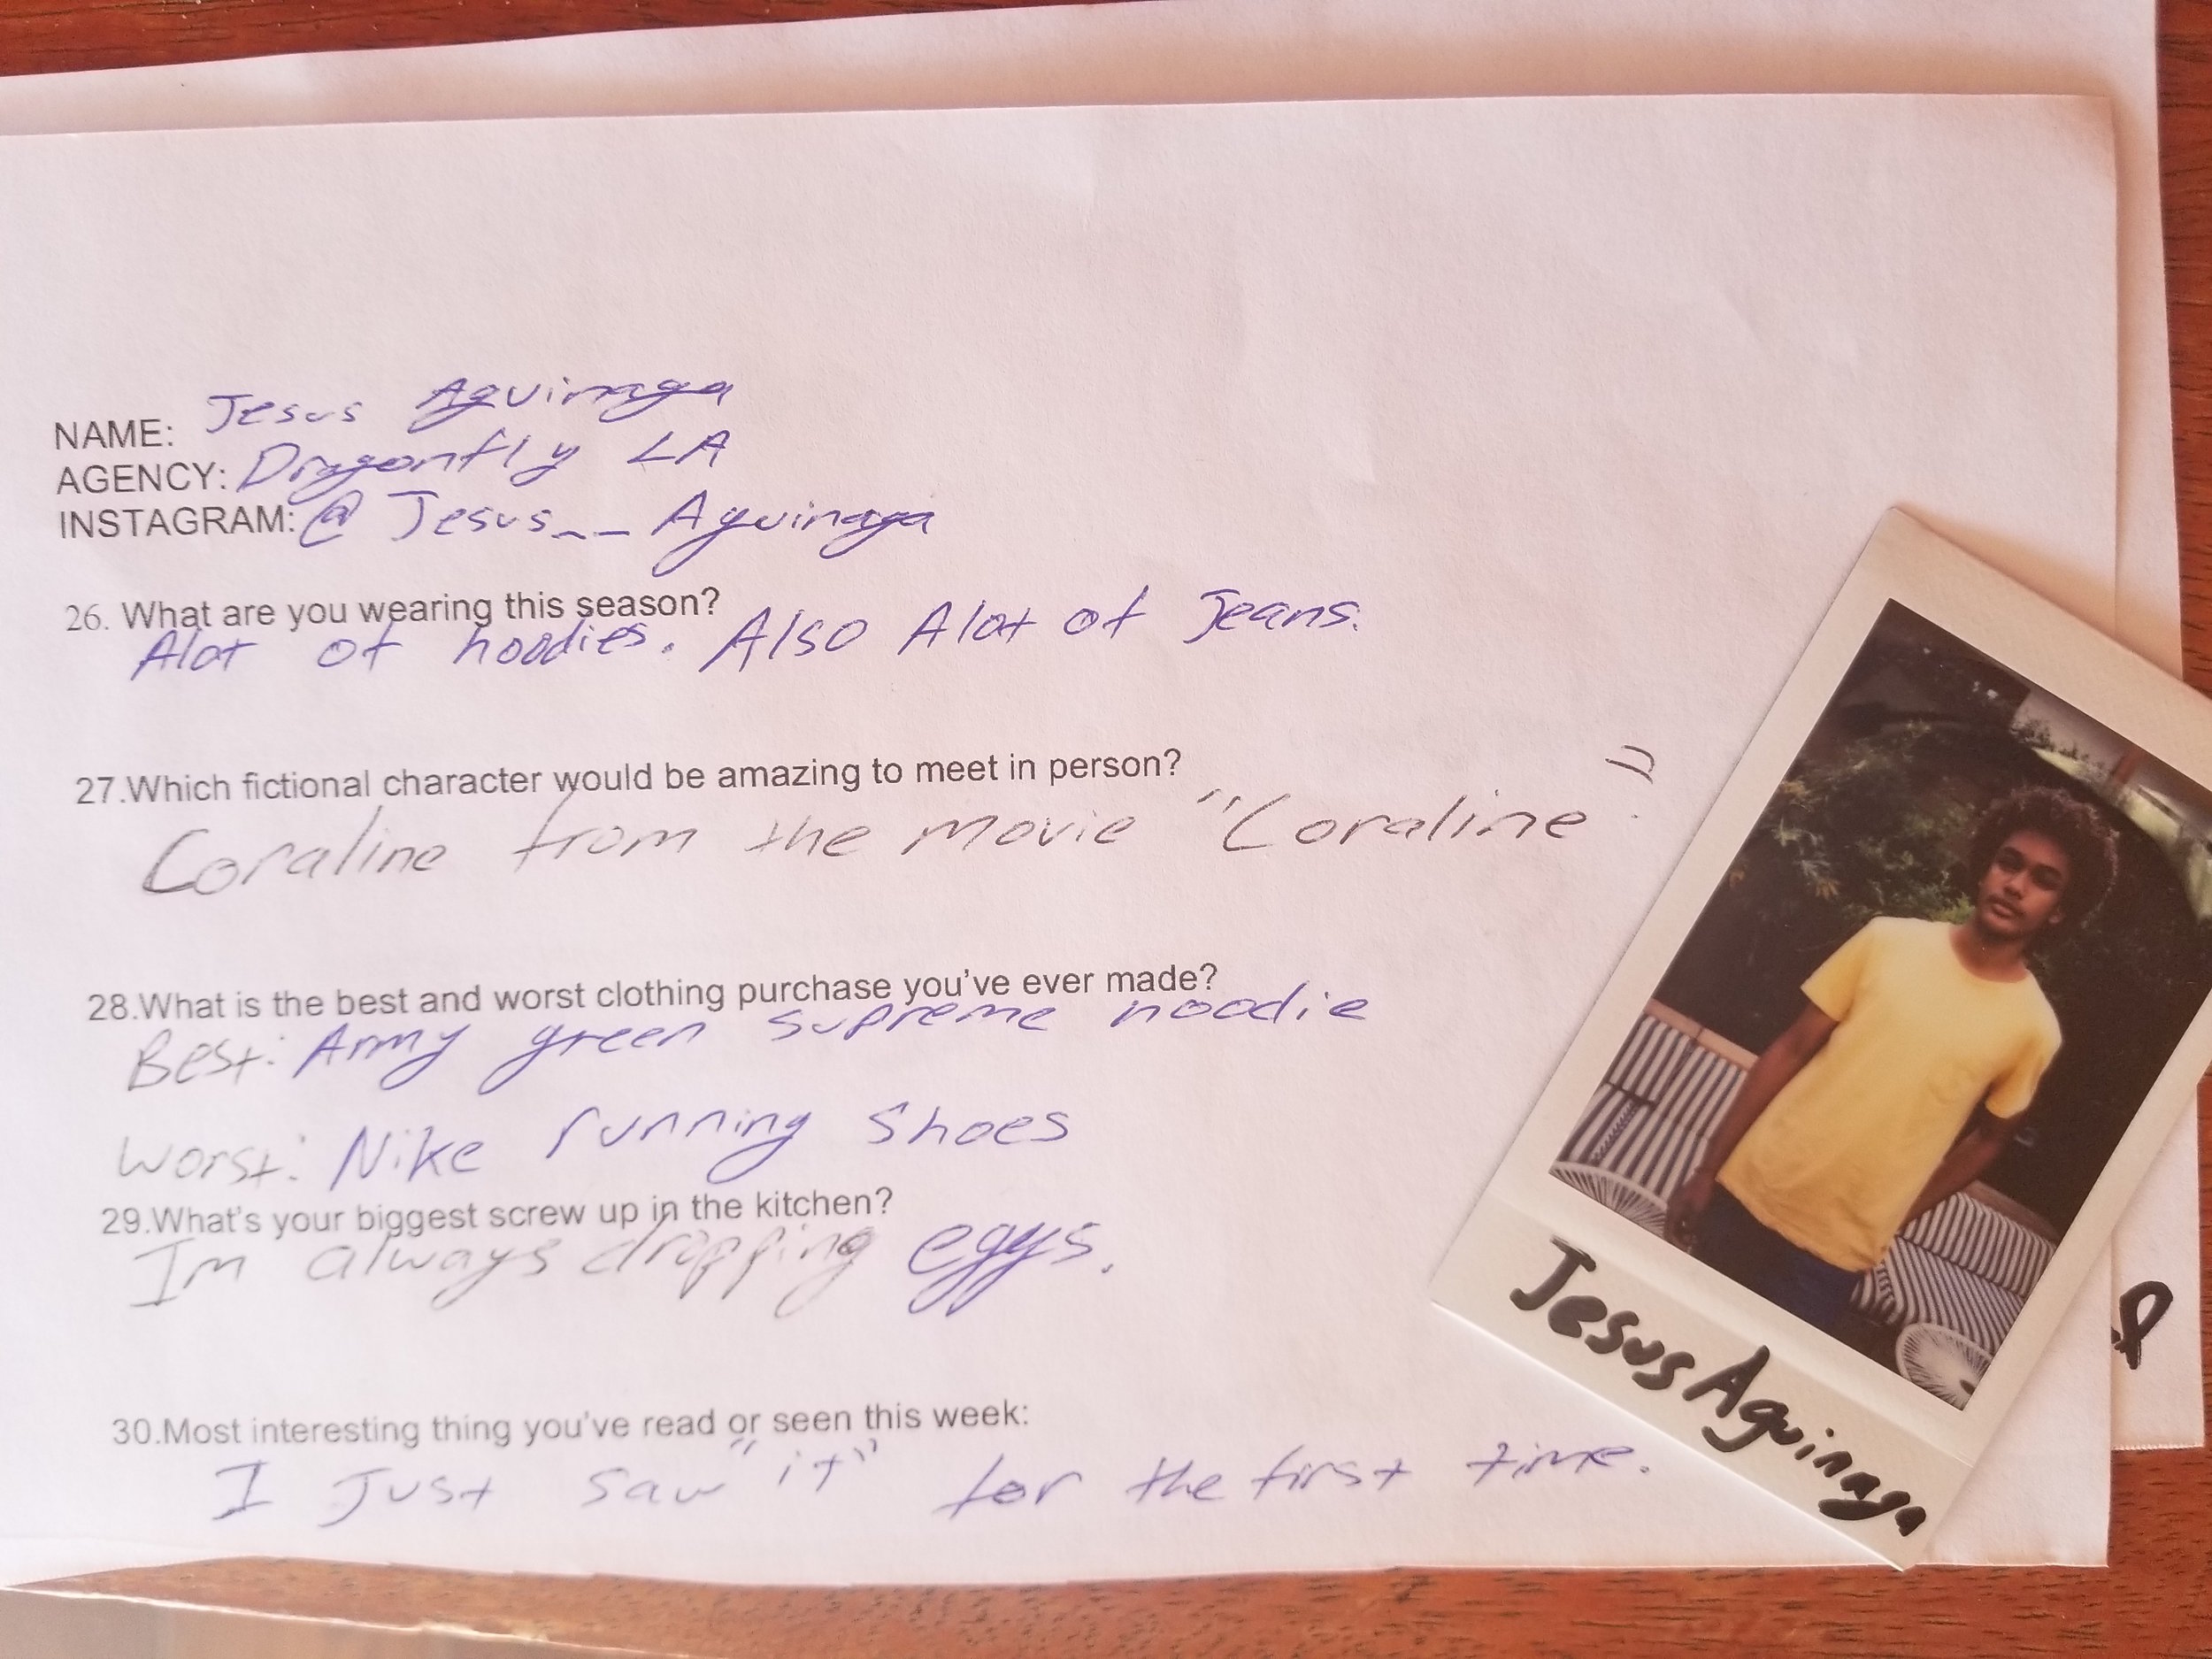 NAME: Jesus Aguinaga
AGENCY: Dragonfly LA
INSTAGRAM: @Jesus__Aguinaga
26. What are you wearing this season?
Alot of hoodies. Also Alot of Jeans.
27.Which fictional character would be amazing to meet in person?
Coraline from the movie "Coraline".
28.What is the best and worst clothing purchase you've ever made?
Best: Army green supreme hoodie
Worst: Nike running shoes
29.What's your biggest screw up in the kitchen?
Im always dropping eggs.
30.Most interesting thing you've read or seen this week:
I Just saw "it" for the first time.
Jesus Aguinaga